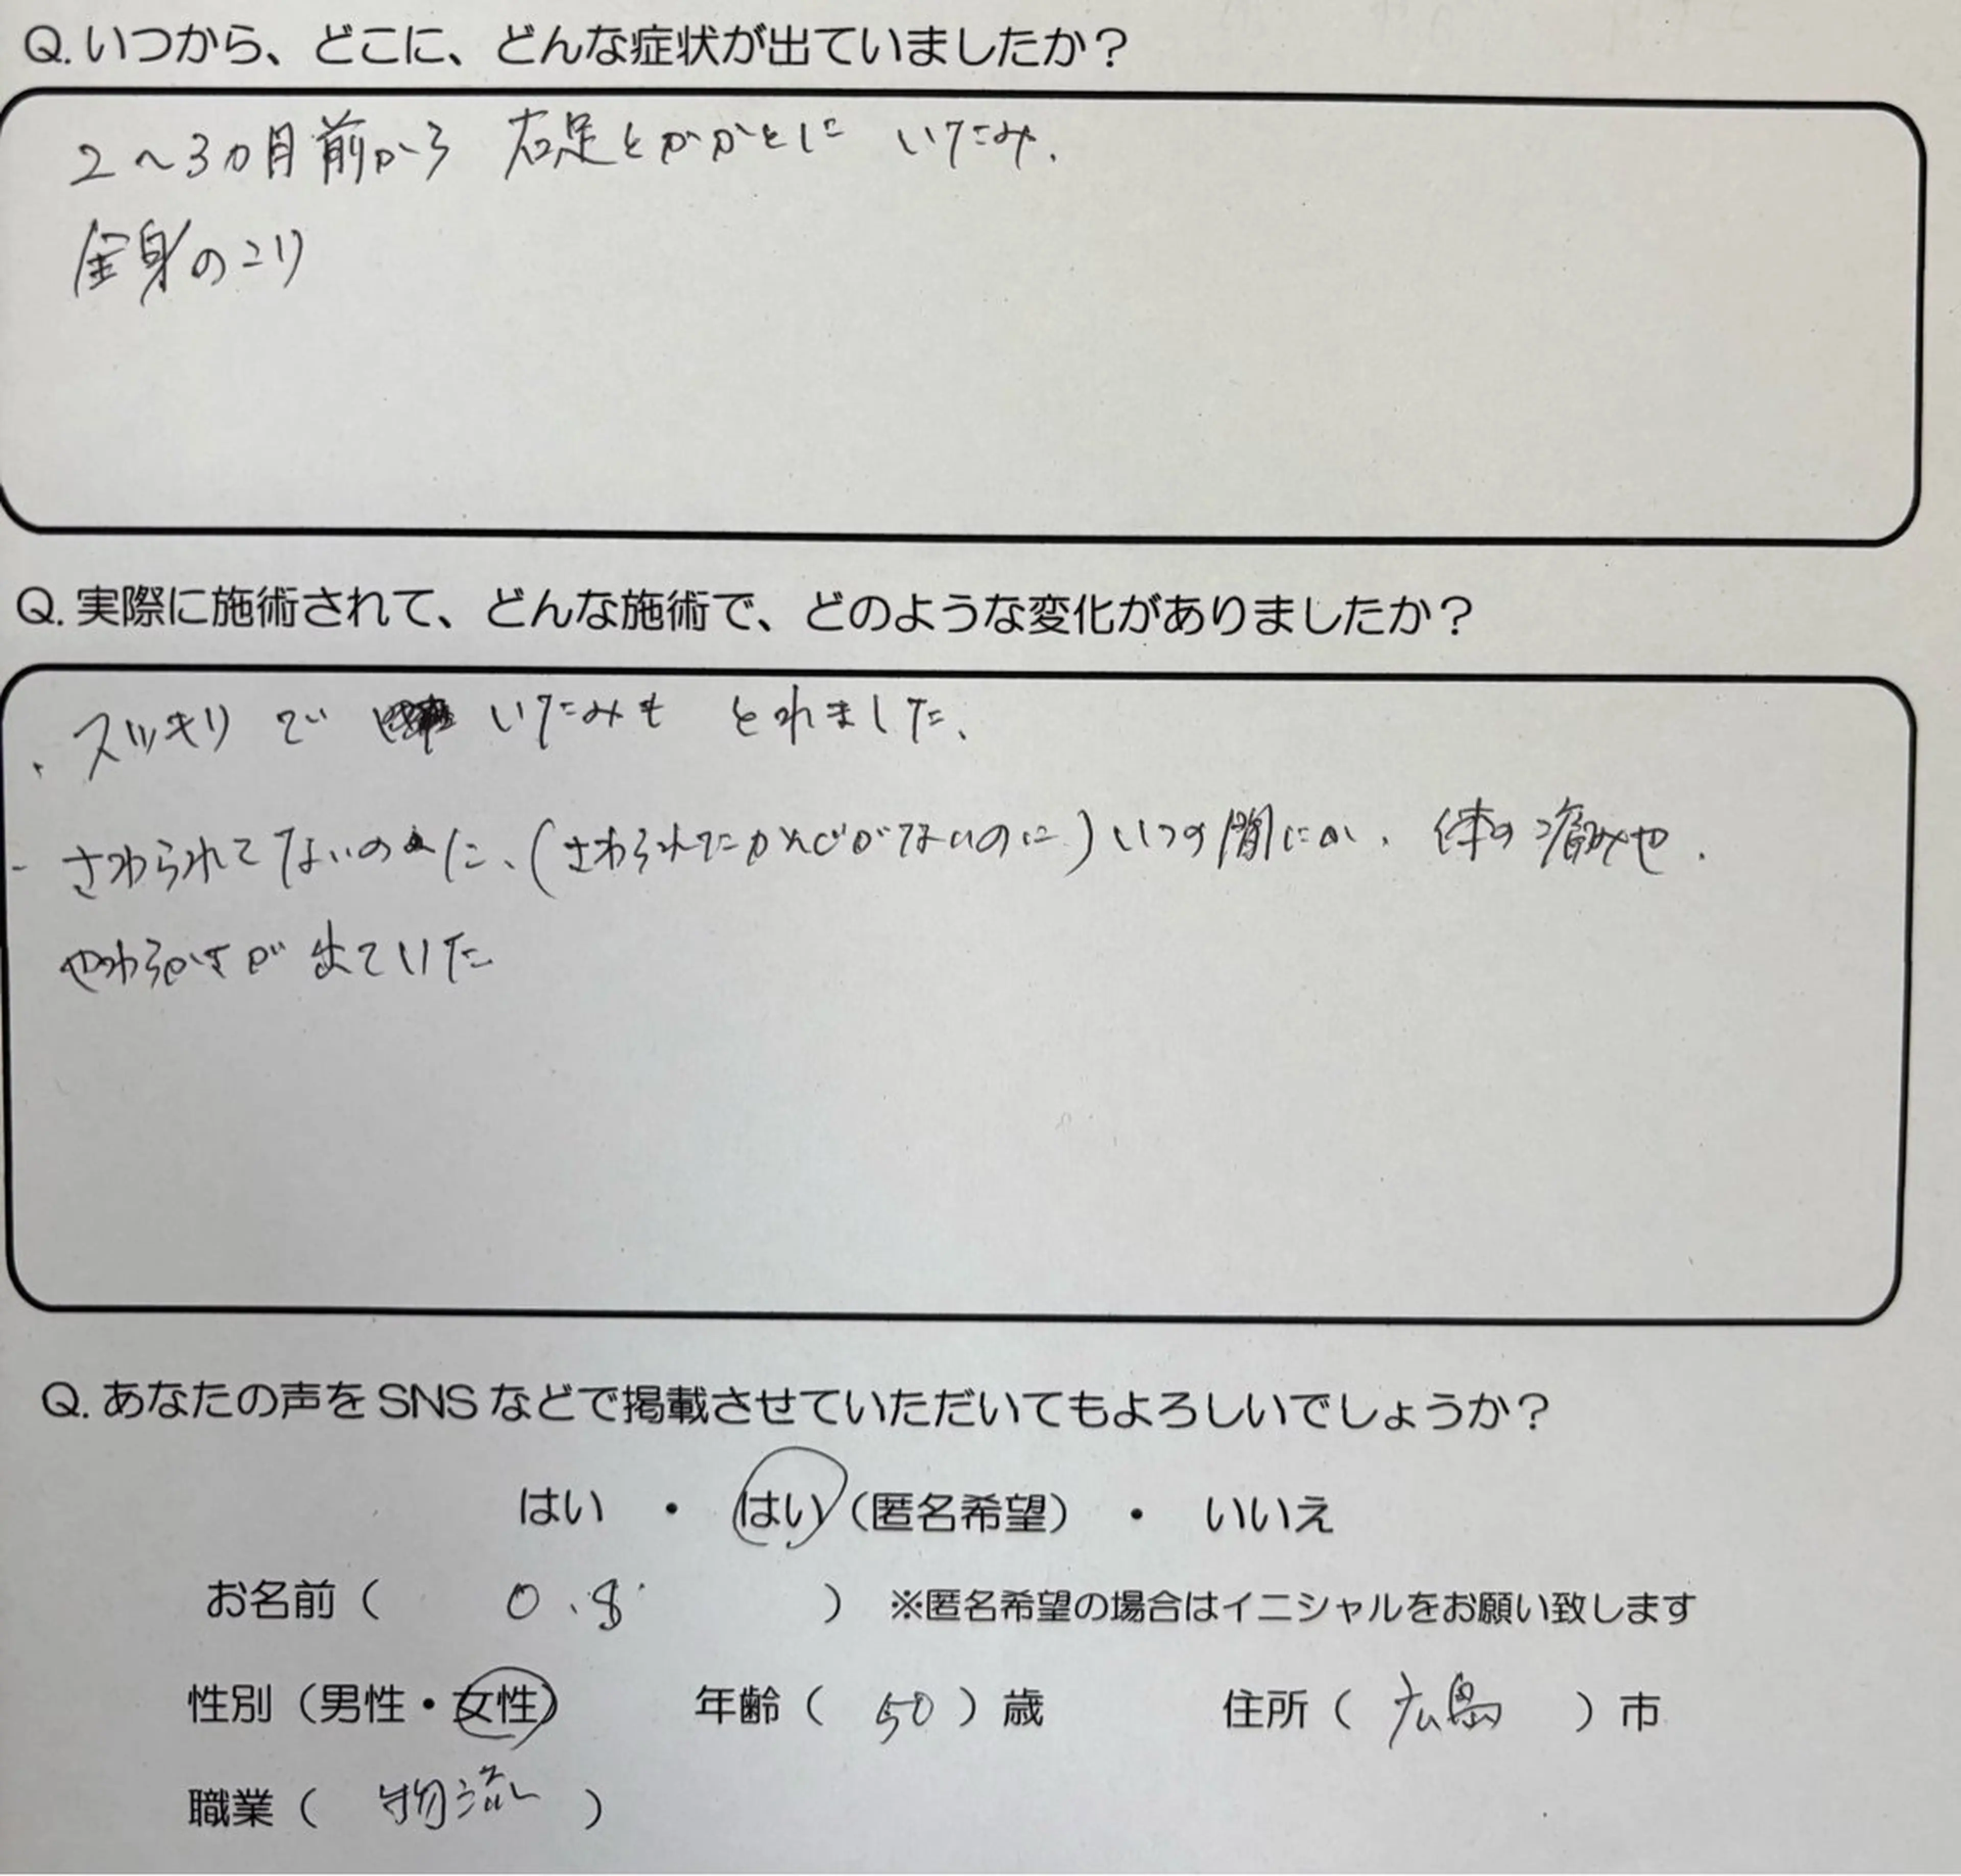 Q. いつから、どこに、どんな症状が出ていましたか？
2～3カ月前から 右足とかかとに いたみ.
全身のこり
Q. 実際に施術されて、どんな施術で、どのような変化がありましたか？
・スッキリで いたみも とれました、
- さわられてないのに、(さわられたかんじがないのに) いつの間にか、体の痛みや、
やわらかさが 出ていた
Q. あなたの声をSNSなどで掲載させていただいてもよろしいでしょうか？
はい ・ はい（匿名希望） ・ いいえ
お名前（ ） ※匿名希望の場合はイニシャルをお願い致します
性別（男性・女性） 年齢（ 50 ）歳 住所（ 広島 ）市
職業（ 物流 ）